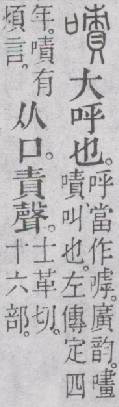 嘖大呼也。呼當作嘑。廣韵。
嘖叫也。左傳定四
年。嘖有
煩言。
从口。責聲。士革切。
十六部。